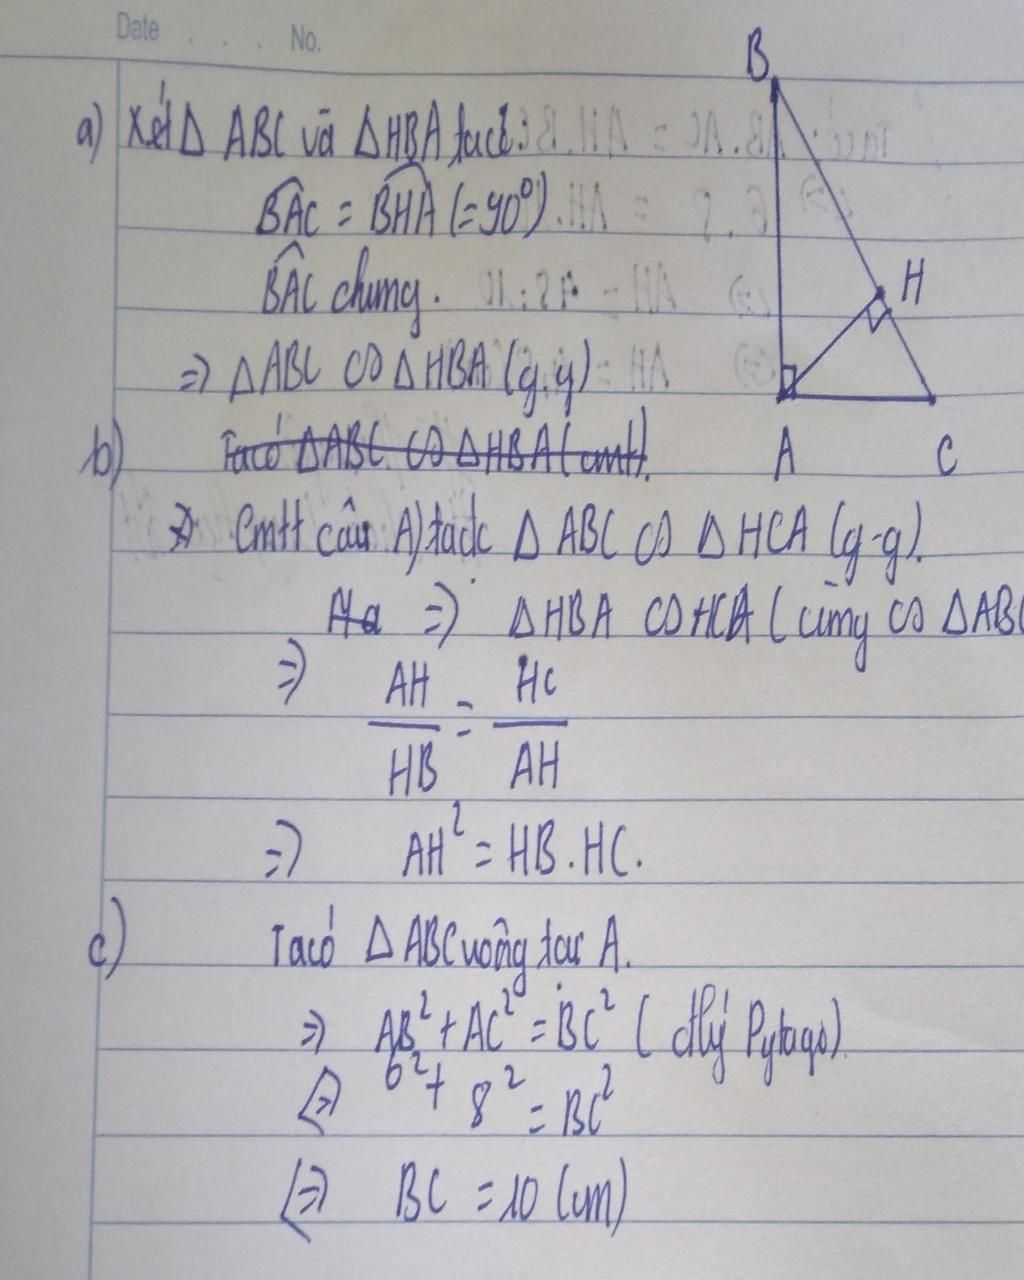 Date . . . No.
B
a) Xét Δ ABC và Δ HBA ta có:
BAC = BHA (= 90⁰)
BAC chung.
H
=> Δ ABC ∽ Δ HBA (g.g)
A C
b) Ta có Δ ABC ∽ Δ HBA (cmt).
=> Cmtt câu A) ta đc Δ ABC ∽ Δ HCA (g-g).
=> Δ HBA ∽ HCA ( cùng ∽ Δ ABC
=> AH/HB = HC/AH
=> AH² = HB.HC.
c) Ta có Δ ABC vuông tại A.
=> AB² + AC² = BC² ( đlý Pytago)
<=> 6² + 8² = BC²
<=> BC = 10 (cm)